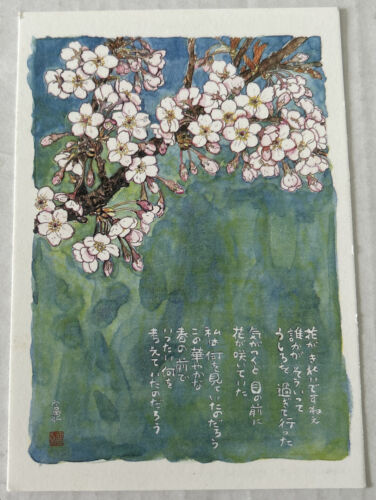 花がきれいですねえ
誰かがそういって
うしろを過ぎて行った
気がつくと目の前に
花が咲いていた
私は何を見ていたのだろう
この華やかな
春の前で
いったい何を
考えていたのだろう